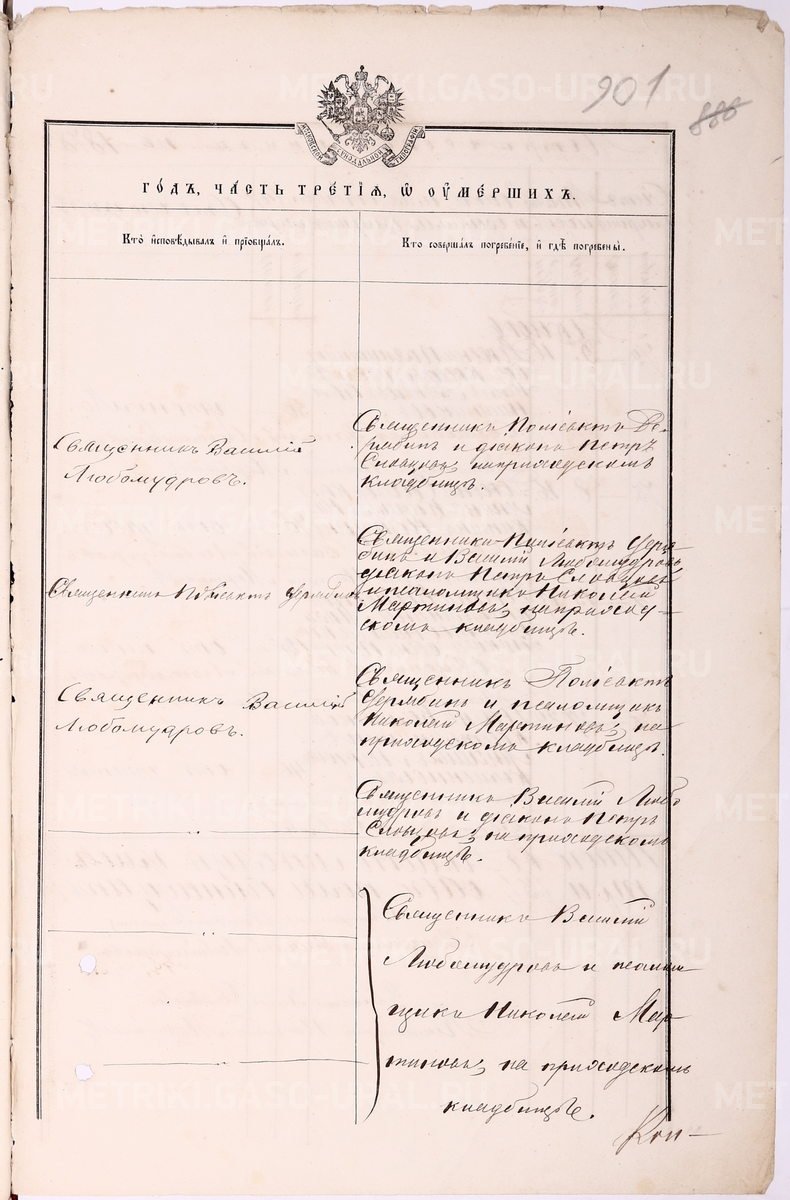 901
886
МОСКОВСКОЙ СѴНОДАЛЬНОЙ ТИПОГРАФІИ
ГО́ДЪ, ЧА́СТЬ ТРЕ́ТІѦ, Ѡ҆ ОУ҆МЕ́РШИХЪ.
Кто̀ и҆сповѣ́дывалъ и҆ прїѡбща́лъ.
Кто совершалъ погребенїе, и҆ гдѣ̀ погребены̀.
Священникъ Василій
Любомудровъ.
Священникъ Поліевктъ Де-
рябинъ и діаконъ Петръ
на приходскомъ
кладбищѣ.
Священникъ Поліевктъ Дерябинъ
Священники Поліевктъ Деря-
бинъ и Василій Любомудровъ
діаконъ Петръ
и псаломщикъ Николай
Мартиновъ, на приход-
скомъ кладбищѣ.
Священникъ Василій
Любомудровъ.
Священникъ Поліевктъ
Дерябинъ и псаломщикъ
Николай Мартиновъ, на
приходскомъ кладбищѣ.
Священникъ Василій Любо
мудровъ и діаконъ Петръ
на приходскомъ
кладбищѣ.
Священникъ Василій
Любомудровъ и псалом
щикъ Николай Мар-
тиновъ, на приходскомъ
кладбищѣ.
Коп-
METRIKI.GASO-URAL.RU